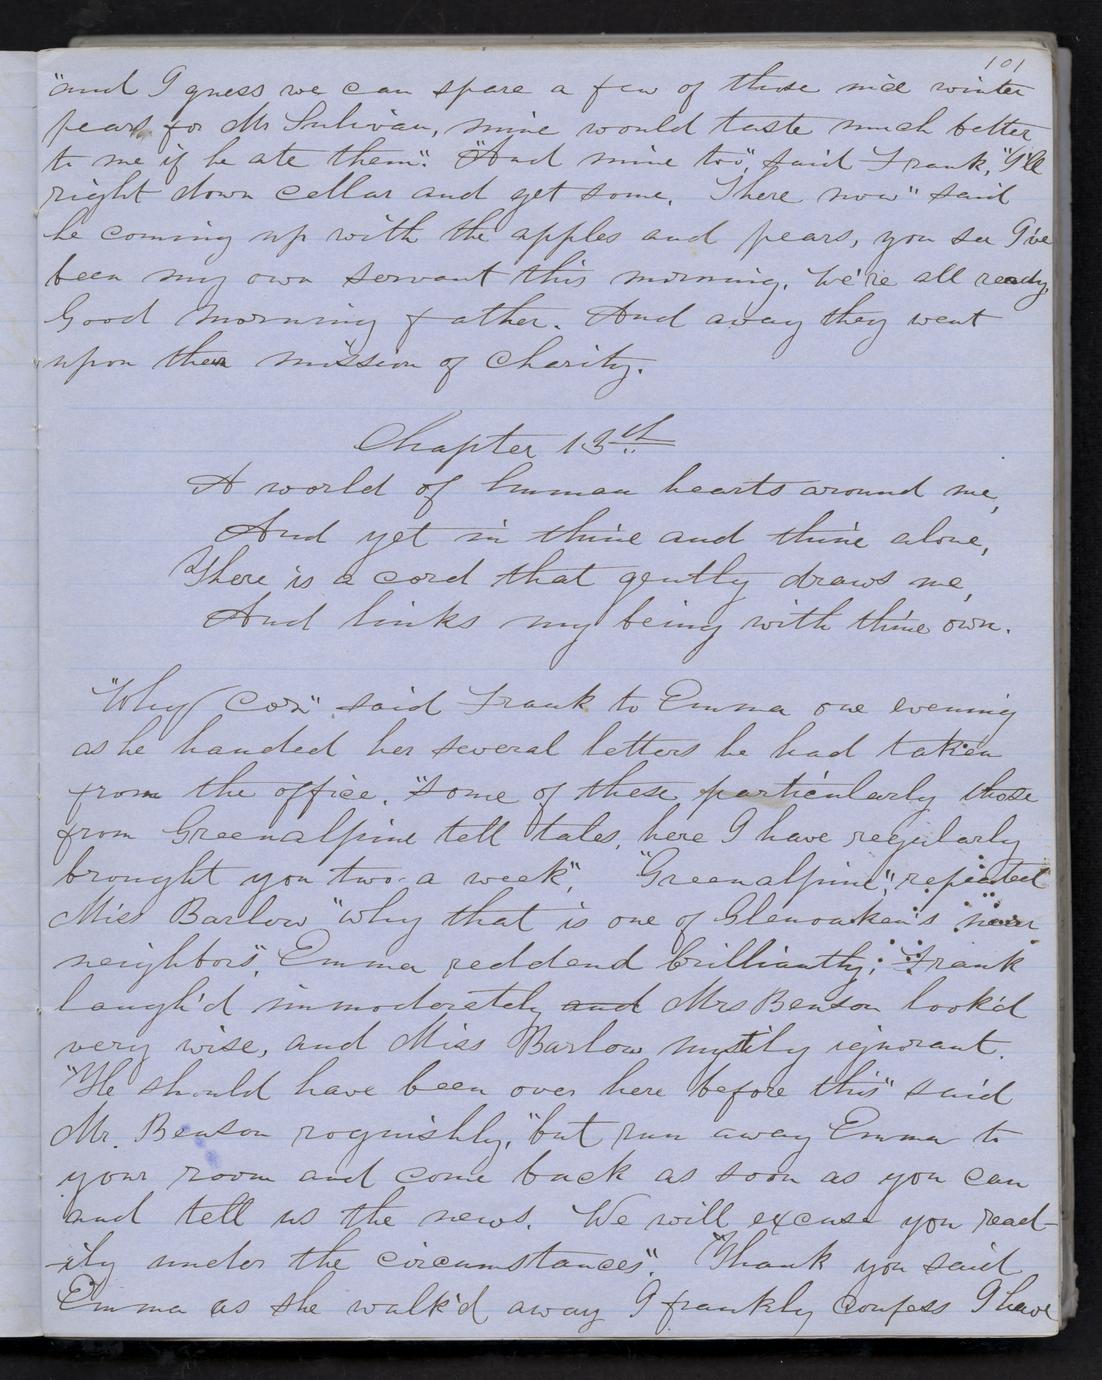 101
"and I guess we can spare a few of those nice winter
pears for Mr Sulivan, mine would taste much better
to me if he ate them". "And mine too", said Frank, "I'll
right down cellar and get some. There now" said
he coming up with the apples and pears, you see I've
been my own servant this morning. We're all ready,
Good Morning father. And away they went
upon their mission of Charity.
Chapter 13th
A world of human hearts around me,
And yet in thine and thine alone,
There is a cord that gently draws me,
And links my being with thine own.
"Why Coz" said Frank to Emma one evening
as he handed her several letters he had taken
from the office. "Some of these particularly those
from Greenalpine tell tales, here I have regularly
brought you two a week". "Greenalpine", repeated
Miss Barlow "why that is one of Glenoaken's near
neighbors", Emma reddend brilliantly; Frank
laugh'd immoderately and Mrs Benson look'd
very wise, and Miss Barlow mystily ignorant.
"He should have been over here before this" said
Mr. Benson roguishly, "but run away Emma to
your room and come back as soon as you can
and tell us the news. We will excuse you read-
ily under the circumstances". "Thank you said
Emma as she walk'd away I frankly confess I have